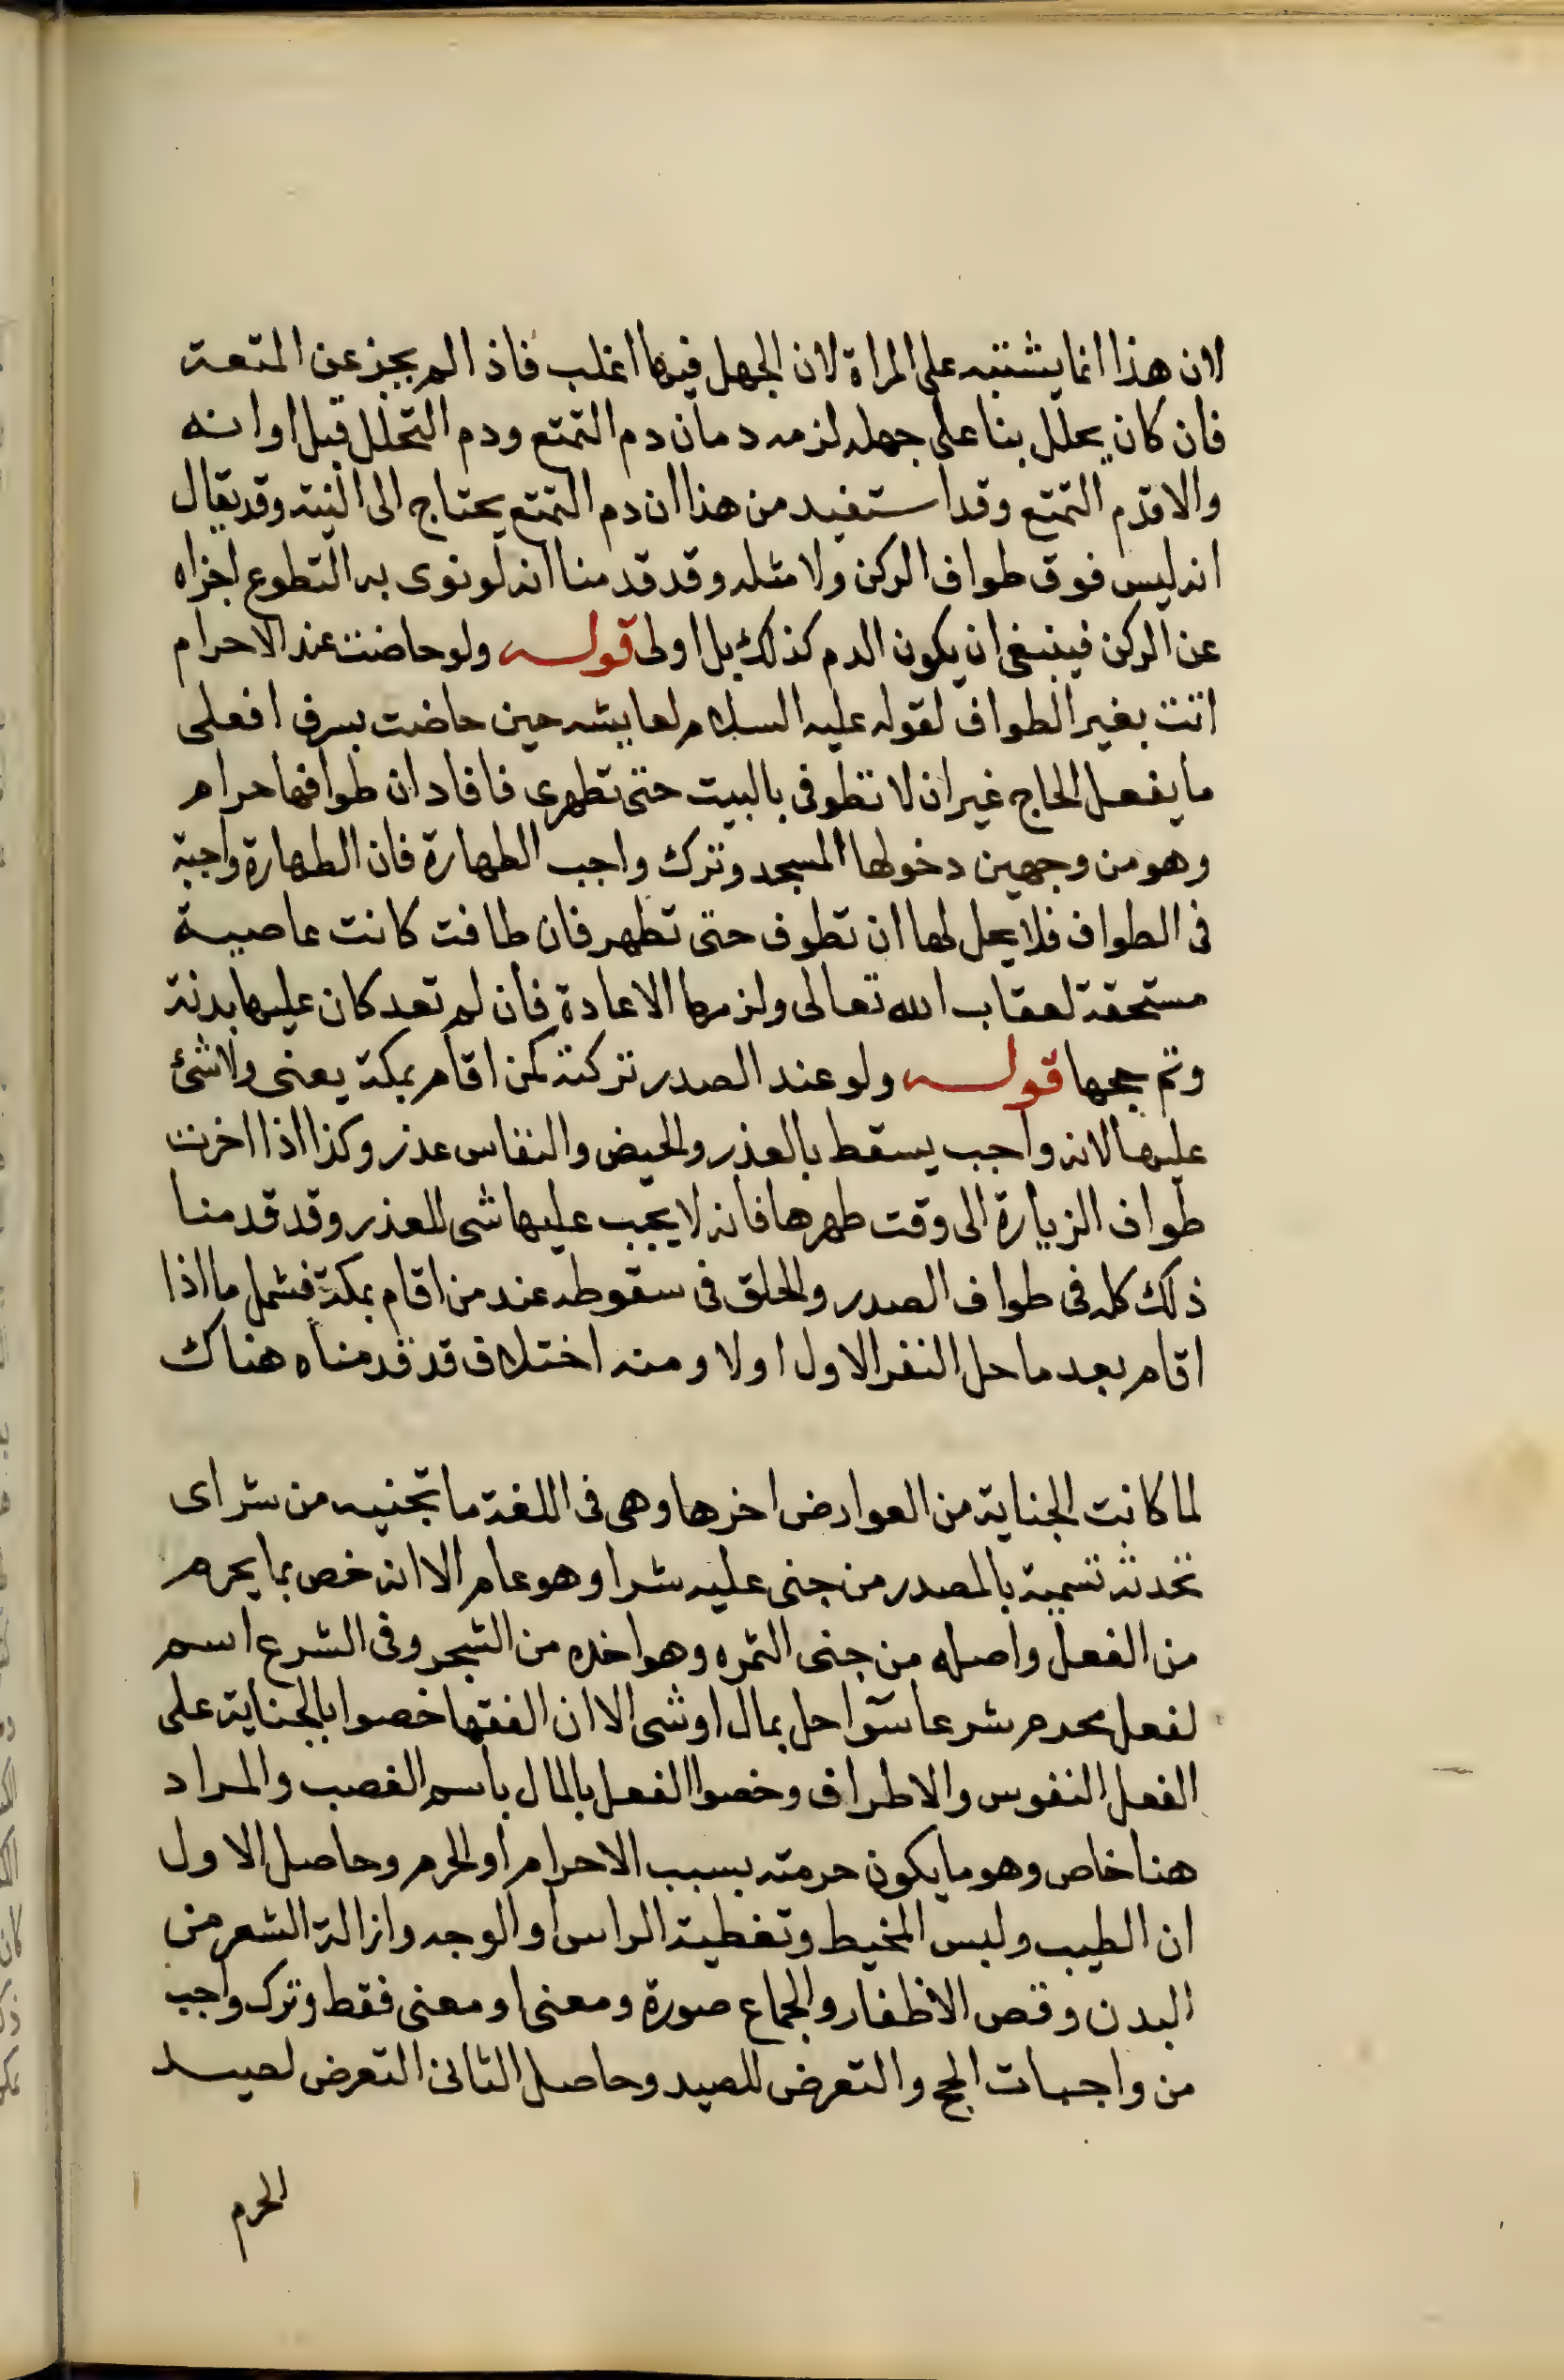 لان هذا انما يشتبه على المراة لان الجهل فيها اغلب فاذا لم يجز عن المتعة
فان كان يحلل بنا على جهله لزمه دمان دم التمتع ودم التحلل قبل اوانه
والا قدم التمتع وقد استفيد من هذا ان دم التمتع يحتاج الى النية وقد يقال
انه ليس فوق طواف الركن ولا مثله وقد قدمنا انه لو نوى به التطوع اجزاه
عن الركن فينبغى ان يكون الدم كذلك بل اولى قوله ولو حاضت عند الاحرام
اتت بغير الطواف لقوله عليه السلام لعايشه حين حاضت بسرف افعلى
ما يفعل الحاج غير ان لا تطوفى بالبيت حتى تطهرى فافاد ان طوافها حرام
وهو من وجهين دخولها المسجد وترك واجب الطهارة فان الطهارة واجبة
فى الطواف فلا يحل لها ان تطوف حتى تطهر فان طافت كانت عاصية
مستحقة لعقاب الله تعالى ولزمها الاعادة فان لم تعد كان عليها بدنة
وتم حجها قوله ولو عند الصدر تركته كمن اقام بمكة يعنى ولا شئ
عليها لانه واجب يسقط بالعذر والحيض والنفاس عذر وكذا اذا اخرت
طواف الزيارة الى وقت طهرها فانه لا يجب عليها شى للعذر وقد قدمنا
ذلك كله فى طواف الصدر والحلق فى سقوطه عند من اقام بمكة فشمل ما اذا
اقام بعد ما حل النفر الاول اولا ومنه اختلاف قد قدمناه هناك
لما كانت الجناية من العوارض اخرها وهى فى اللغة ما تجنيه من شر اى
تحدثه تسمية بالمصدر من جنى عليه شرا وهو عام الا انه خص بما يحرم
من الفعل واصله من جنى الثمره وهو اخذه من الشجر وفى الشرع اسم
لفعل محرم شرعا سوا حل بمال او شى الا ان الفقها خصوا بالجناية على
الفعل النفوس والاطراف وخصوا الفعل بالمال باسم الغصب والمراد
هنا خاص وهو ما يكون حرمته بسبب الاحرام او الحرم وحاصل الاول
ان الطيب ولبس المخيط وتغطية الراس او الوجه وازالة الشعر من
البدن وقص الاظفار والجماع صورة ومعنى او معنى فقط وترك واجب
من واجبات الحج والتعرض للصيد وحاصل الثانى التعرض لصيد
الحرم